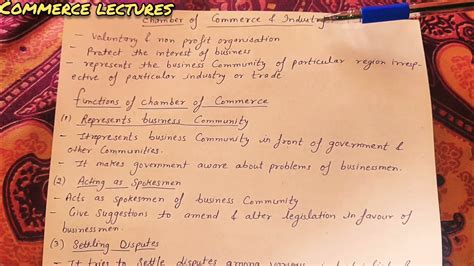 Commerce lectures
Chamber of Commerce & Industry
- Voluntary & non profit organisation
- Protect the interest of business
- represents the business Community of particular region irresp-
ective of particular industry or trade.
Functions of Chamber of Commerce
(1) Represents business Community
- It represents business Community in front of government &
other Communities.
- It makes government aware about problems of businessmen.
(2) Acting as Spokesmen
- Acts as spokesmen of business Community
- Give Suggestions to amend & alter legislation in favour of
businessmen.
(3) Settling Disputes
- It tries to settle disputes among various